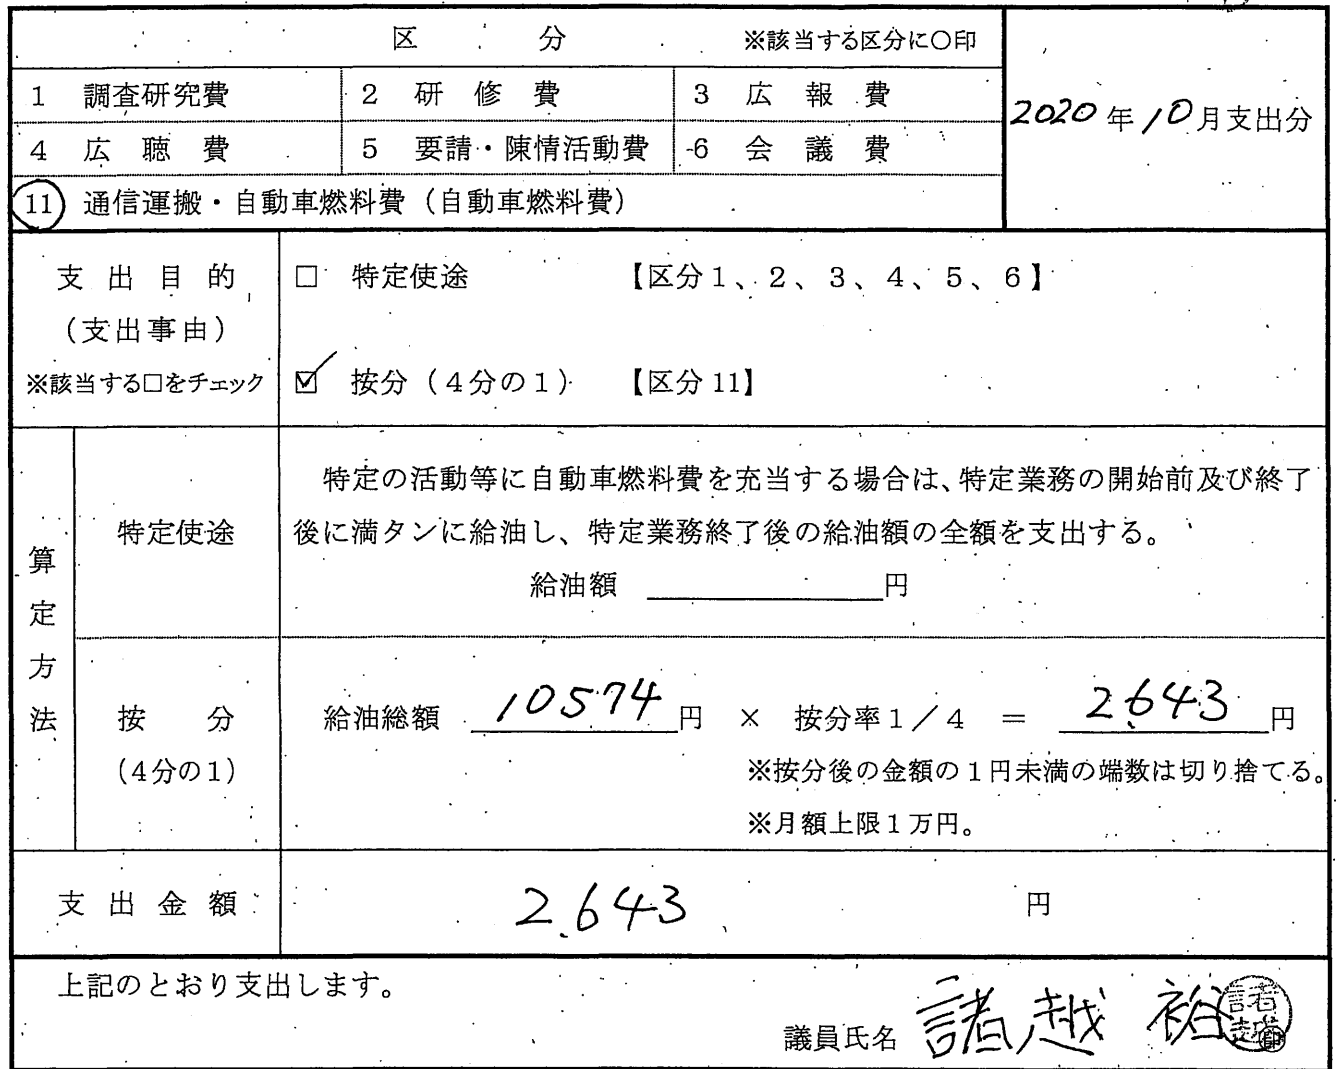 区 分 ※該当する区分に○印
1 調査研究費 2 研修費 3 広報費
2020年10月支出分
4 広聴費 5 要請・陳情活動費 6 会議費
11 通信運搬・自動車燃料費(自動車燃料費)
支出目的
(支出事由)
※該当する□をチェック
□ 特定使途 【区分1、2、3、4、5、6】
☑ 按分(4分の1) 【区分11】
算定方法
特定使途
特定の活動等に自動車燃料費を充当する場合は、特定業務の開始前及び終了
後に満タンに給油し、特定業務終了後の給油額の全額を支出する。
給油額 円
按分
(4分の1)
給油総額 10574円 × 按分率1/4 = 2,643円
※按分後の金額の1円未満の端数は切り捨てる。
※月額上限1万円。
支出金額 2,643 円
上記のとおり支出します。
議員氏名 諸越 裕
諸越
印